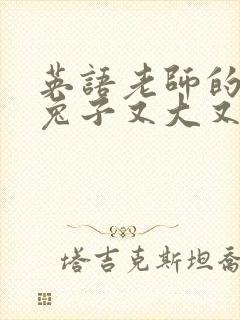 英語老師的
兔子又大又
塔吉克斯坦喬